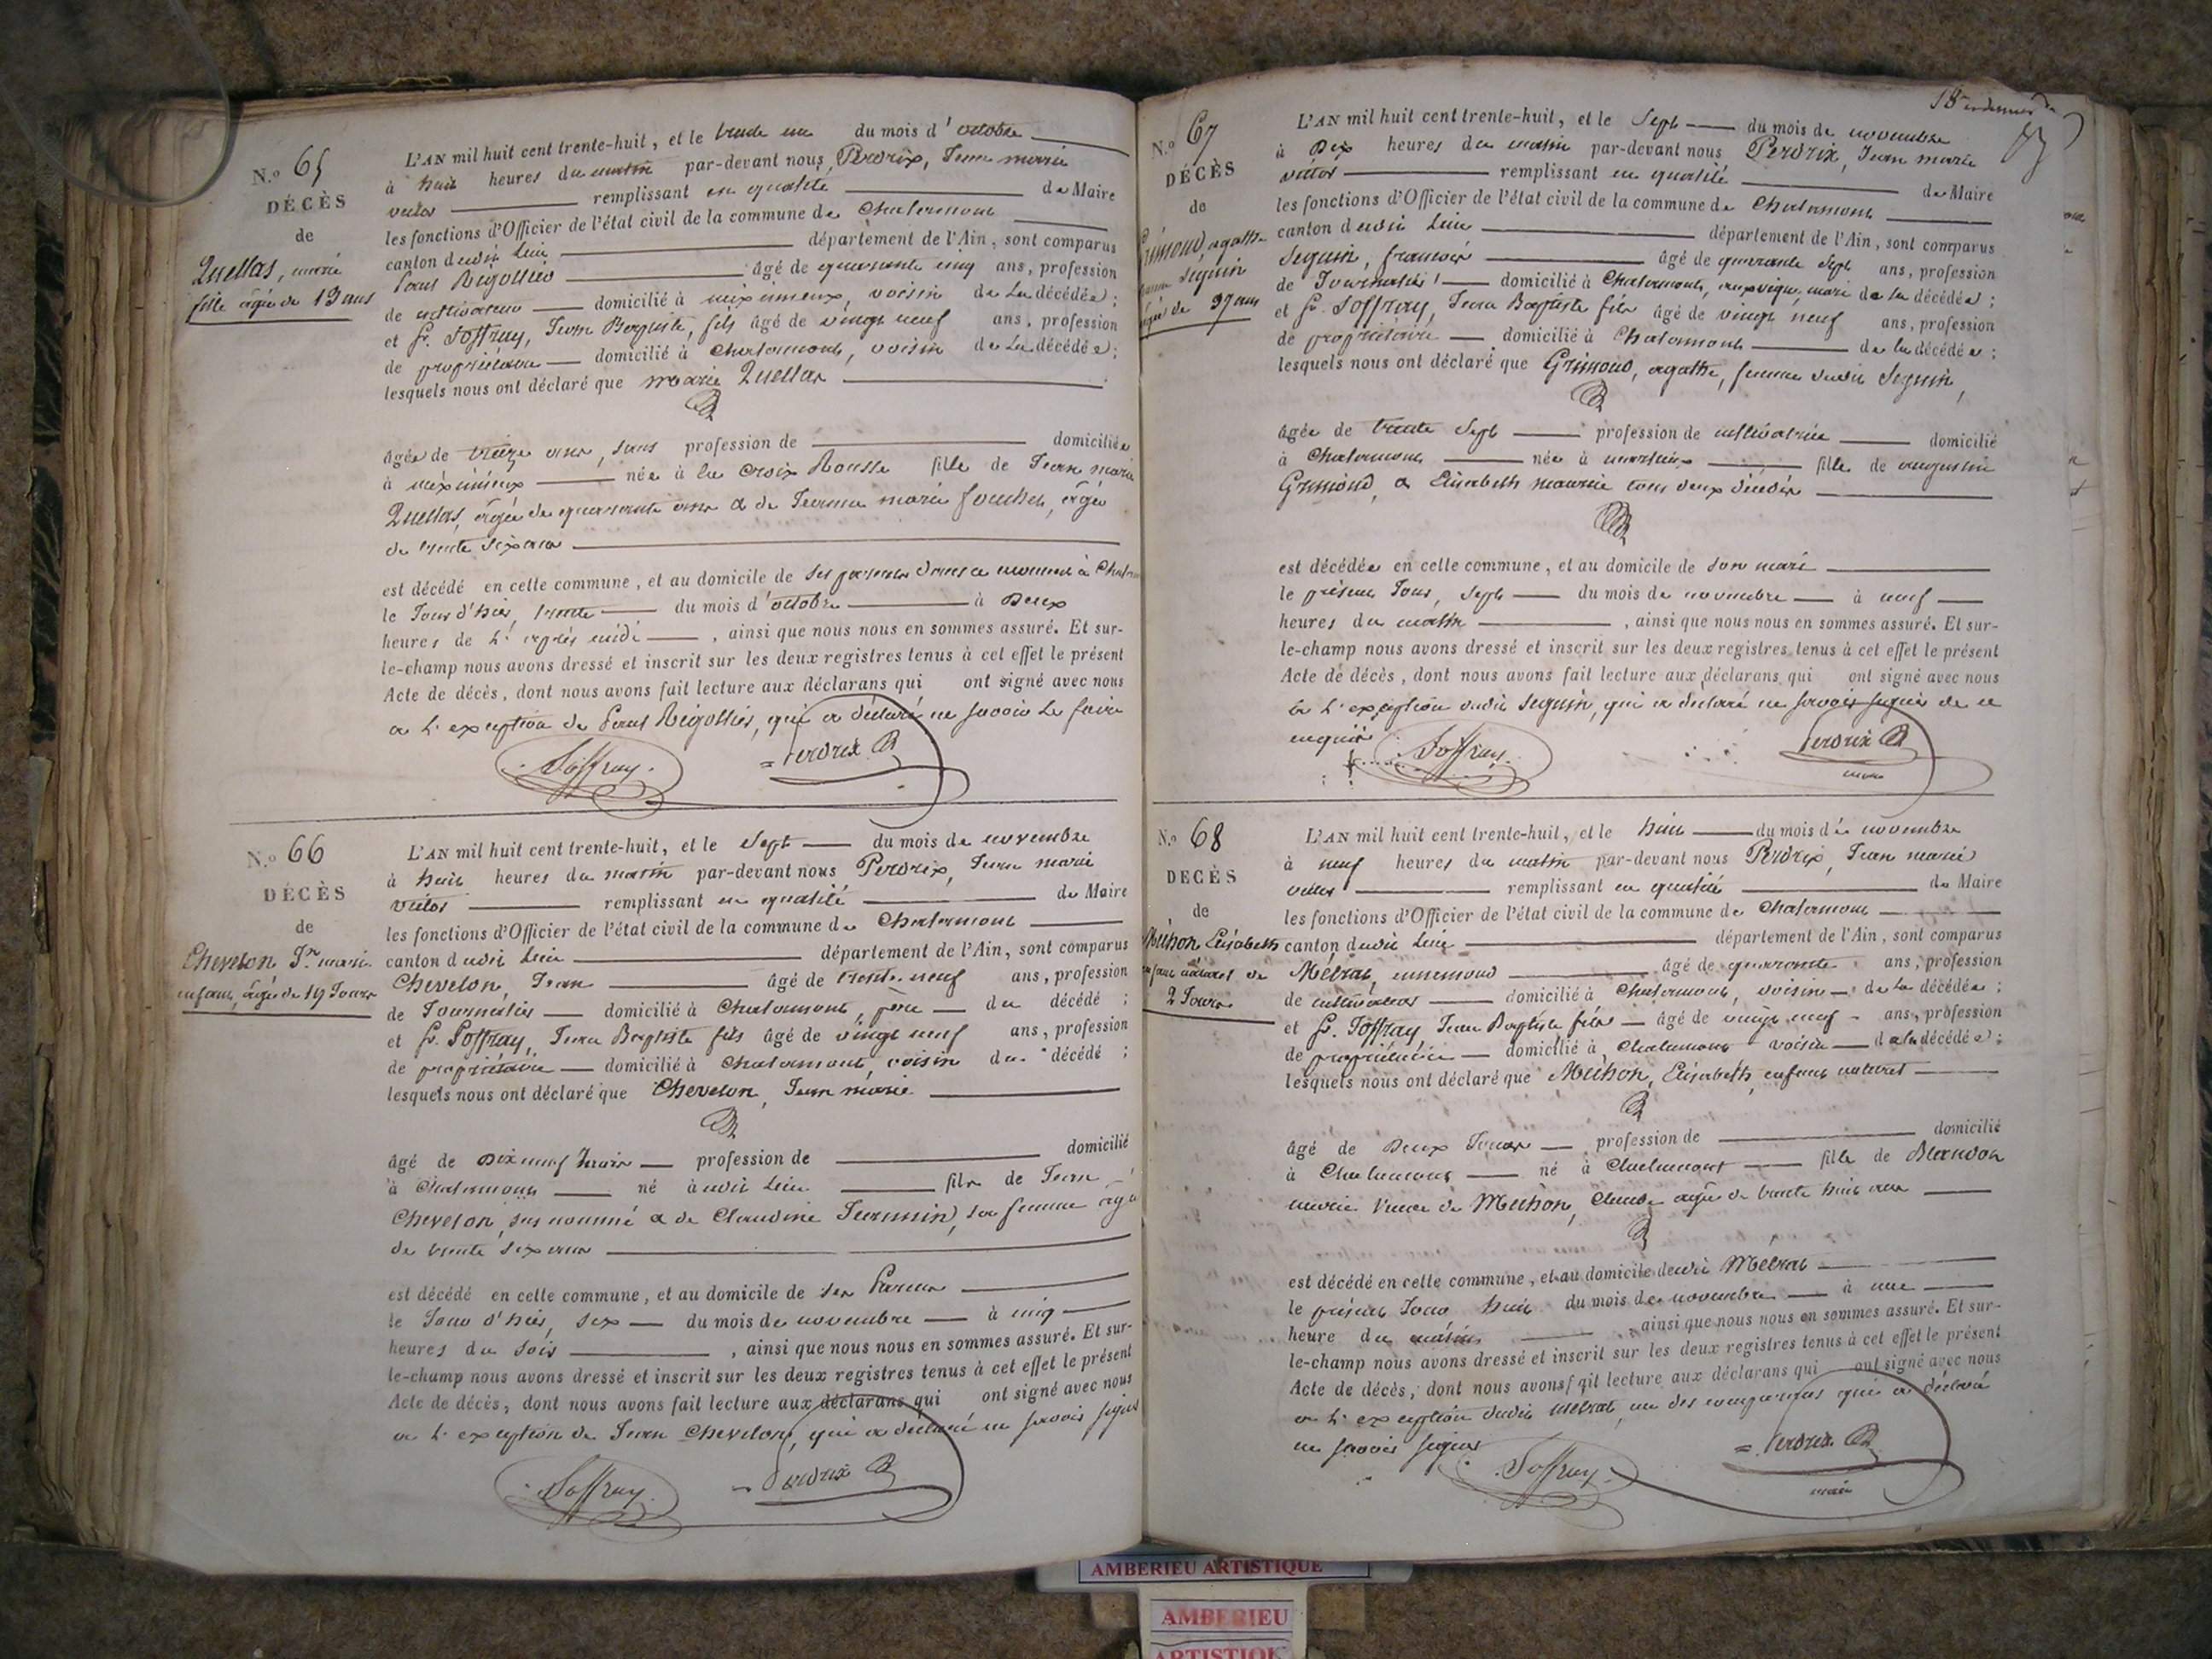 N.º 65
DÉCÈS
de
Quellas, marie
fille âgée de 13 ans
L'AN mil huit cent trente-huit, et le trente un du mois d'octobre
à huit heures du matin par-devant nous Perdrix, Jean marie
victor remplissant en qualité de Maire
les fonctions d'Officier de l'état civil de la commune de Chalamont
canton dudit lieu département de l'Ain, sont comparus
Paul Rigollier âgé de quarante cinq ans, profession
de cultivateur domicilié à méximieux, voisin de la décédée;
et Sr. Joffray, Jean Baptiste, fils âgé de vingt neuf ans, profession
de propriétaire domicilié à Chalamont, voisin de la décédée;
lesquels nous ont déclaré que marie Quellas
âgée de treize ans, sans profession de domiciliée
à méximieux née à la Croix Rousse fille de Jean marie
Quellas, âgée de quarante ans & de Jeanne marie fouchet, âgée
de trente six ans
est décédé en cette commune, et au domicile de ses parents à
le Jour d'hier, trente du mois d'octobre à Deux
heures de l'après midi, ainsi que nous nous en sommes assuré. Et sur-
le-champ nous avons dressé et inscrit sur les deux registres tenus à cet effet le présent
Acte de décès, dont nous avons fait lecture aux déclarans qui ont signé avec nous
a l'exception de Paul Rigollier, qui a déclaré ne savoir le faire
Joffray. Perdrix
N.º 66
DÉCÈS
de
Chevelon Jn. marie
enfant, âgé de 19 Jours
L'AN mil huit cent trente-huit, et le Sept du mois de novembre
à huit heures du matin par-devant nous Perdrix, Jean marie
victor remplissant en qualité de Maire
les fonctions d'Officier de l'état civil de la commune de Chalamont
canton dudit lieu département de l'Ain, sont comparus
Chevelon, Jean âgé de trente neuf ans, profession
de Journalier domicilié à Chalamont, père du décédé;
et Sr. Joffray, Jean Baptiste fils âgé de vingt neuf ans, profession
de propriétaire domicilié à Chalamont, voisin du décédé;
lesquels nous ont déclaré que Chevelon, Jean marie
âgé de Dix neuf Jours profession de domicilié
à Chalamont né à udit lieu fils de Jean
Chevelon, sus nommé & de Claudine Jeannin, sa femme âgé
de trente six ans
est décédé en cette commune, et au domicile de ses Parens
le Jour d'hier, six du mois de novembre à cinq
heures du soir, ainsi que nous nous en sommes assuré. Et sur-
le-champ nous avons dressé et inscrit sur les deux registres tenus à cet effet le présent
Acte de décès, dont nous avons fait lecture aux déclarans qui ont signé avec nous
a l'exception de Jean Chevelon, qui a déclaré ne savoir signer
Joffray. Perdrix
N.º 67
DÉCÈS
de
Grimoud, agathe
Seguin
âgée de 37 ans
L'AN mil huit cent trente-huit, et le Sept du mois de novembre
à Dix heures du matin par-devant nous Perdrix, Jean marie
victor remplissant en qualité de Maire
les fonctions d'Officier de l'état civil de la commune de Chalamont
canton dudit lieu département de l'Ain, sont comparus
Seguin, francois âgé de quarante Sept ans, profession
de Journalier domicilié à Chalamont, mari de la décédée;
et Sr. Joffray, Jean Baptiste fils âgé de vingt neuf ans, profession
de propriétaire domicilié à Chalamont de la décédée;
lesquels nous ont déclaré que Grimoud, agathe, femme dudit Seguin,
âgée de trente Sept profession de cultivatrice domicilié
à Chalamont née à fille de augustin
Grimoud, & Elisabeth tous deux décédés
est décédée en cette commune, et au domicile de son mari
le présent Jour, Sept du mois de novembre à neuf
heures du matin, ainsi que nous nous en sommes assuré. Et sur-
le-champ nous avons dressé et inscrit sur les deux registres tenus à cet effet le présent
Acte de décès, dont nous avons fait lecture aux déclarans qui ont signé avec nous
a l'exception dudit Seguin, qui a déclaré ne savoir signer de ce
enquis
Joffray. Perdrix
maire
N.º 68
DÉCÈS
de
Muthon, Elisabeth
enfant naturel de
2 Jours
L'AN mil huit cent trente-huit, et le huit du mois de novembre
à neuf heures du matin par-devant nous Perdrix, Jean marie
victor remplissant en qualité de Maire
les fonctions d'Officier de l'état civil de la commune de Chalamont
canton dudit lieu département de l'Ain, sont comparus
Métrat, ennemond âgé de quarante ans, profession
de cultivateur domicilié à Chalamont, voisin de la décédée;
et Sr. Joffray Jean Baptiste fils âgé de vingt neuf ans, profession
de propriétaire domicilié à Chalamont voisin de la décédée;
lesquels nous ont déclaré que Muthon, Elisabeth, enfant naturel
âgé de Deux Jours profession de domicilié
à Chalamont né à Chalamont fille de Blandon
marie Veuve de Muthon, Claude âgée de trente huit ans
est décédé en cette commune, et au domicile dudit Métrat
le présent Jour huit du mois de novembre à une
heure du matin, ainsi que nous nous en sommes assuré. Et sur-
le-champ nous avons dressé et inscrit sur les deux registres tenus à cet effet le présent
Acte de décès, dont nous avons fait lecture aux déclarans qui ont signé avec nous
a l'exception dudit Métrat, un des comparans qui a déclaré
ne savoir signer
Joffray. Perdrix
maire
AMBERIEU ARTISTIQUE
AMBERIEU
ARTISTIQUE